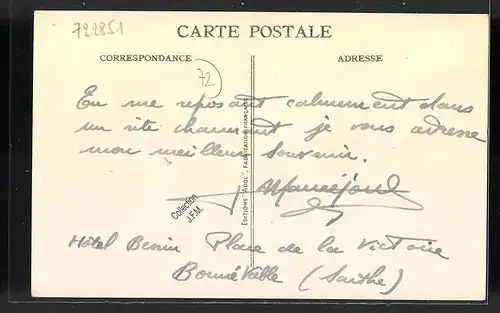 722851
CARTE POSTALE
CORRESPONDANCE
ADRESSE
72
En me reposant calmement dans
un site charmant je vous adresse
mon meilleur souvenir.
EDITIONS "ADOL", FABRICATION FRANÇAISE
Collection
J.F.M.
Hôtel Benin Place de la Victoire
Bonnétable (Sarthe)